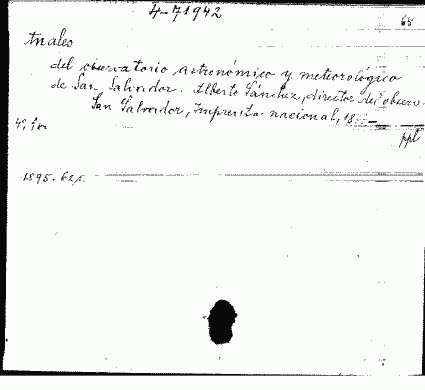 4-71942
68
Anales
del observatorio astronómico y meteorológico
de San Salvador. Alberto Sánchez, director del observ.
San Salvador, Imprenta nacional, 18
4º, fo.
ppl
1895. 62 p.